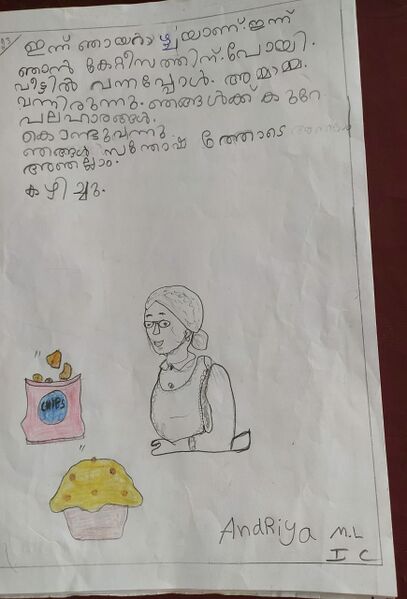 ഇന്ന് ഞായറാഴ്ച്ചയാണ്. ഇന്ന്
ഞാൻ കേറ്റീസത്തിന് പോയി.
വീട്ടിൽ വന്നപ്പോൾ. അമ്മാമ്മ.
വന്നിരുന്നു. ഞങ്ങൾക്ക് കുറേ
പലഹാരങ്ങൾ.
കൊണ്ടുവന്നു.
ഞങ്ങൾ സന്തോഷ ത്തോടെ
അതല്ലാം.
കഴിച്ചു.
CHIPS
AndRiya M.L
I C